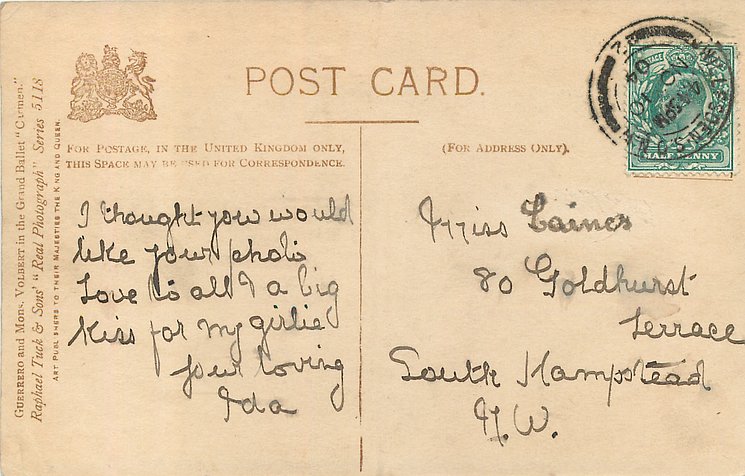 Guerrero and Mons. Volbert in the Grand Ballet "Carmen."
Raphael Tuck & Sons' "Real Photograph" Series 5118
Art Publishers to Their Majesties the King and Queen.
POST CARD.
For Postage, in the United Kingdom only,
this Space may be used for Correspondence.
(For Address Only).
HALF PENNY
I thought you would
like your photo
Love to all & a big
kiss for my girlie
your loving
Ida
Miss Caines
80 Goldhurst
Terrace
South Hampstead
N.W.